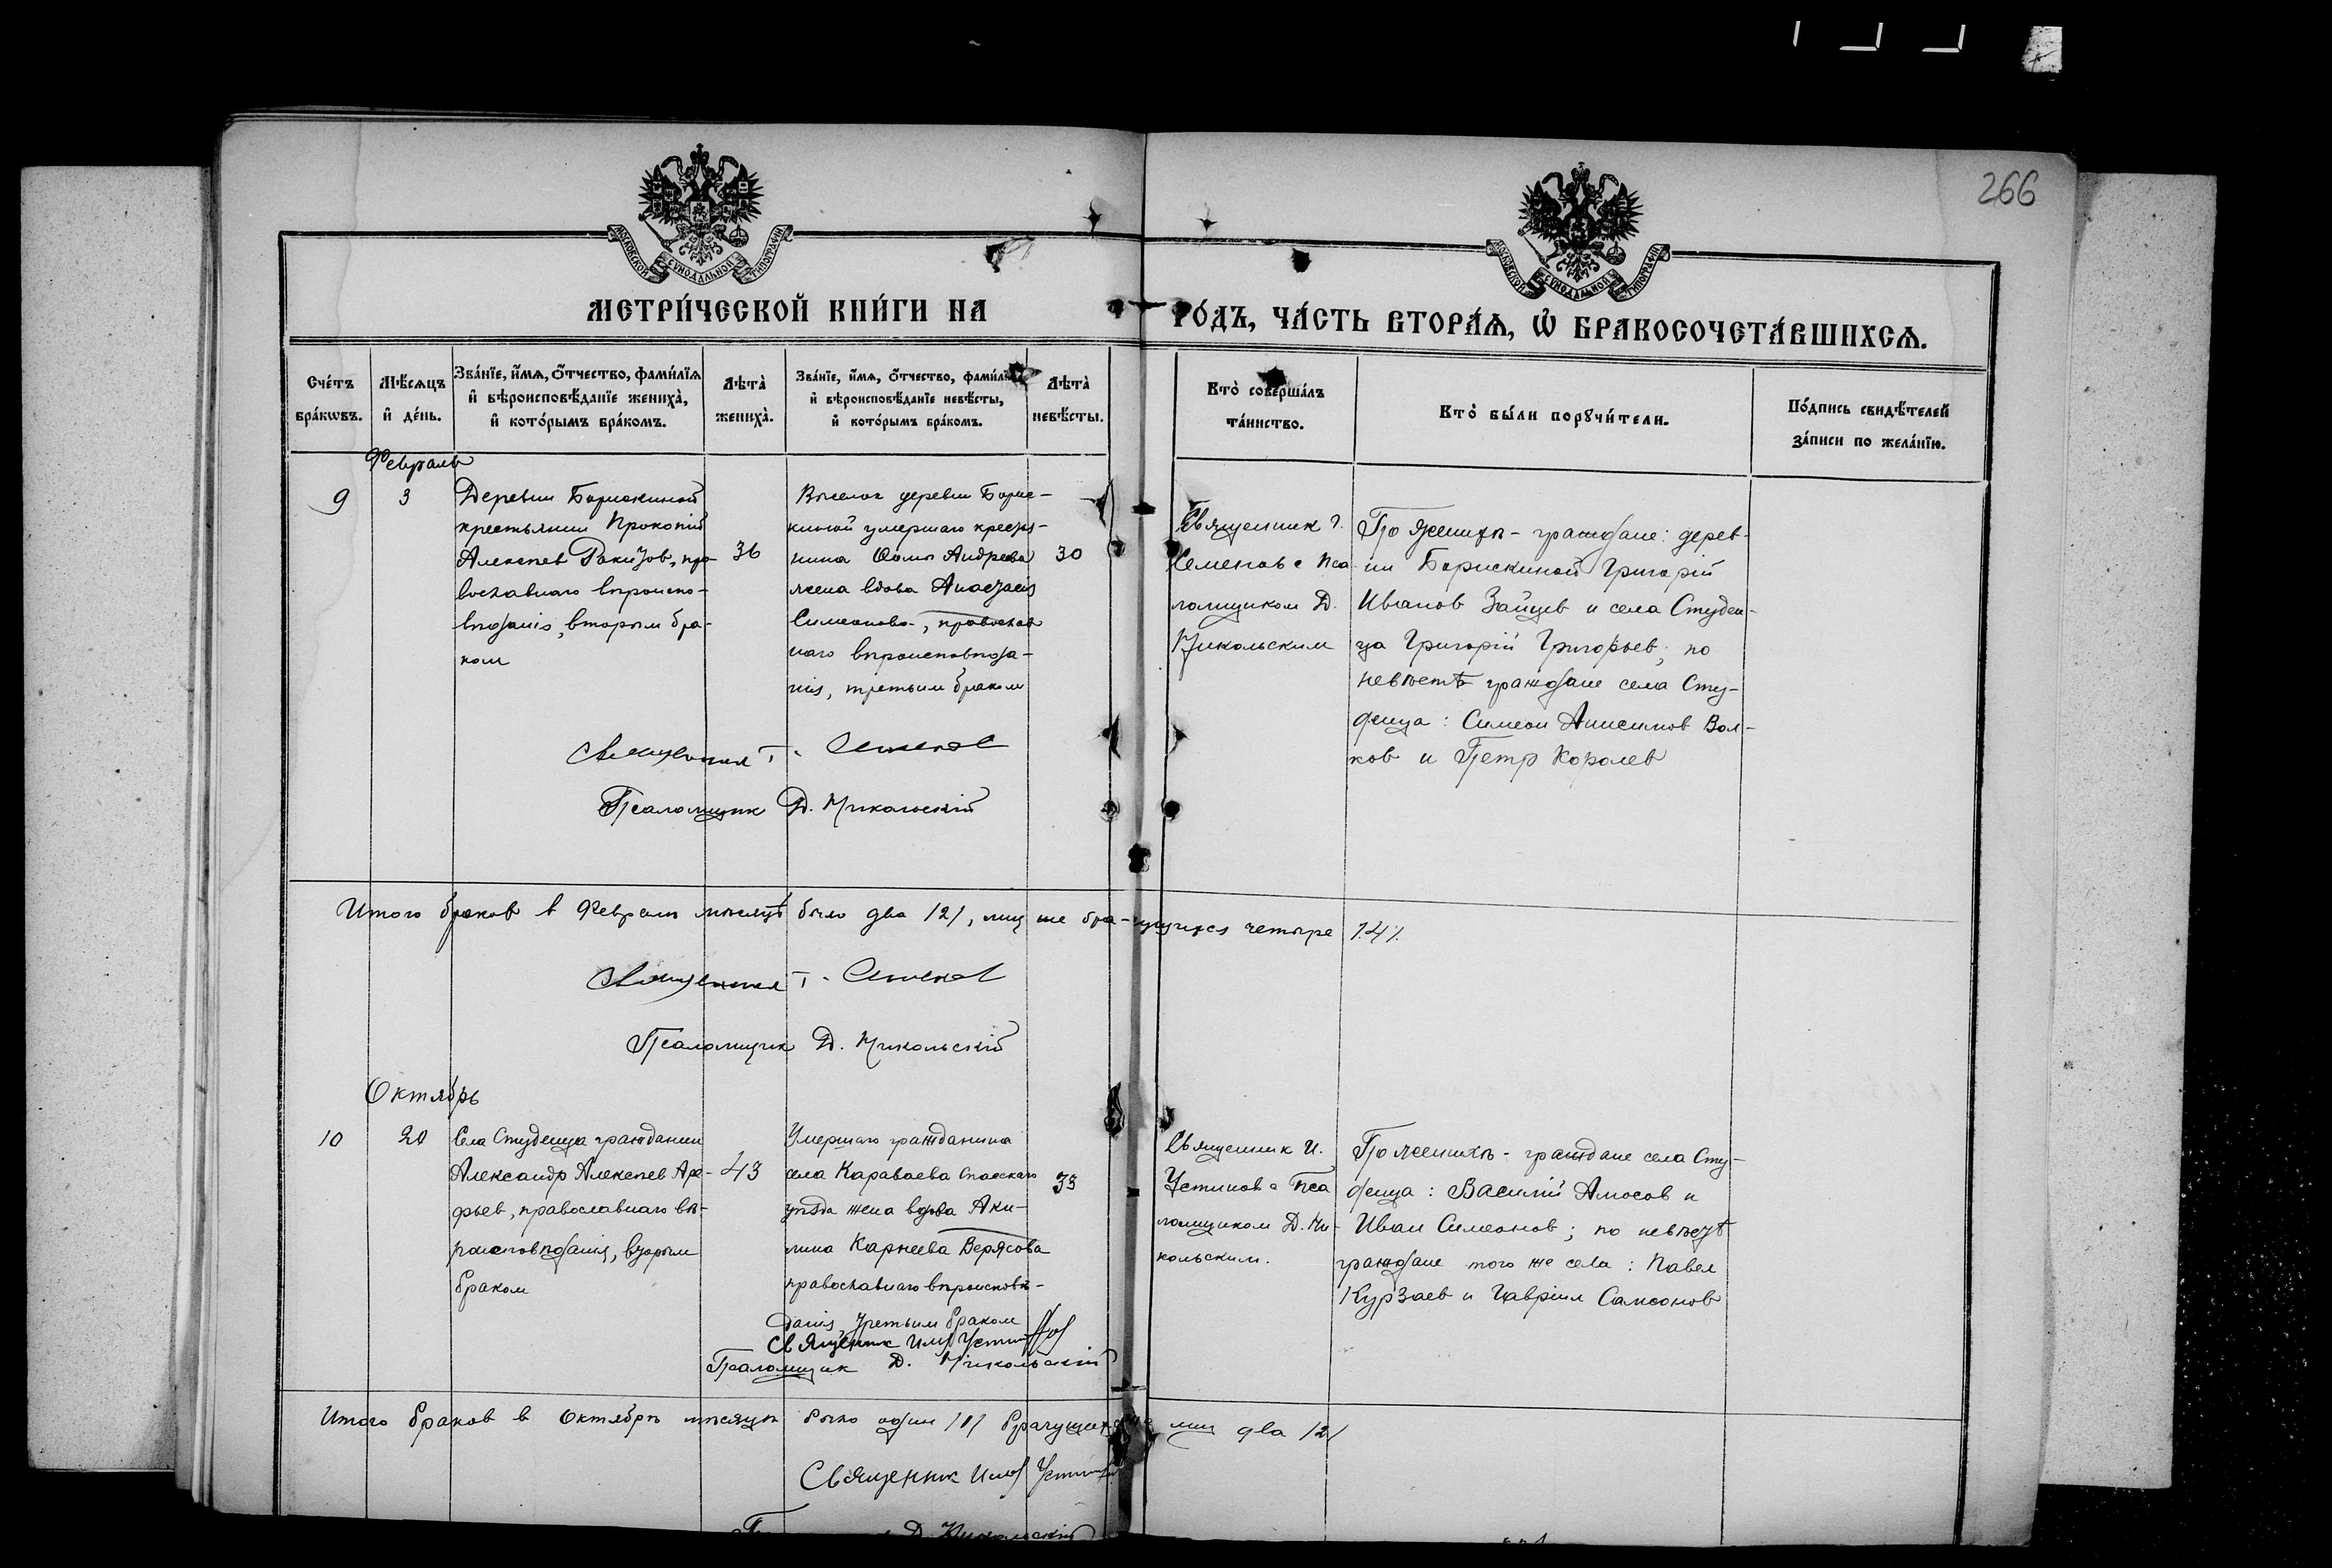 266
МОСКОВСКОЙ СѴНОДАЛЬНОЙ ТИПОГРАФІИ
МОСКОВСКОЙ СѴНОДАЛЬНОЙ ТИПОГРАФІИ
МЕТРИ́ЧЕСКОЙ КНИ́ГИ НА
ГО́ДЪ, ЧА́СТЬ ВТОРА́Ѧ, Ѡ҆ БРАКОСОЧЕТА́ВШИХСѦ.
Сче́тъ
бра́кѡвъ.
Мѣ́сѧцъ
и҆ де́нь.
Зва́нїе, и҆́мѧ, о҆́тчество, фами́лїѧ
и҆ вѣроисповѣ́данїе жениха̀,
и҆ кото́рымъ бра́комъ.
Лѣта̀
жениха̀.
Зва́нїе, и҆́мѧ, о҆́тчество, фами́лїѧ
и҆ вѣроисповѣ́данїе невѣ́сты,
и҆ кото́рымъ бра́комъ.
Лѣта̀
невѣ́сты.
Кто̀ соверша́лъ
та́инство.
Кто̀ бы́ли порꙋчи́тели.
По́дпись свидѣ́телей
за́писи по жела́нїю.
Февраль
9
3
Деревни Борискиной
крестьянин Прокопій
Алексѣев Ракизов, пра-
вославнаго вѣроиспо-
вѣданія, вторым бра-
ком
36
деревни Борис-
киной умершаго крестья-
нина Ѳомы Андреева
жена вдова Анастасія
Симеонова, православ
наго вѣроисповѣда-
нія, третьим браком
30
Священник Г.
Семенов с пса
ломщиком Д.
Никольским
По женихѣ - граждане: дерев-
ни Борискиной Григорій
Иванов Зайцев и села Студен-
ца Григорій Григорьев; по
невѣстѣ граждане села Сту-
денца: Симеон Анисимов Вол-
ков и Петр Королев
Священник Г. Семенов
Псаломщик Д. Никольскій
Итого браков в Феврале мѣсяцѣ было два /2/, лиц же бра-чущихся четыре /4/.
Священник Г. Семенов
Псаломщик Д. Никольскій
Октябрь
10
20
Села Студенца гражданин
Александр Алексѣев Аре-
фьев, православнаго вѣ-
роисповѣданія, вторым
браком
43
Умершаго гражданина
села Караваева Спасскаго
уѣзда жена вдова Аки-
лина Карнеева Верясова
православнаго вѣроисповѣ-
данія, третьим браком
33
Священник И.
Устинов с Пса
ломщиком Д. Ни-
кольским.
По женихѣ - граждане села Сту-
денца: Василий Амосов и
Иван Симеонов; по невѣстѣ
граждане того же села: Павел
Курзаев и Гавріил Самсонов
Священник Устинов
Псаломщик Д. Никольскій
Итого браков в Октябрѣ мѣсяцѣ было один /1/ брачущихся лиц два /2/
Священник Устинов
Д. Никольскій